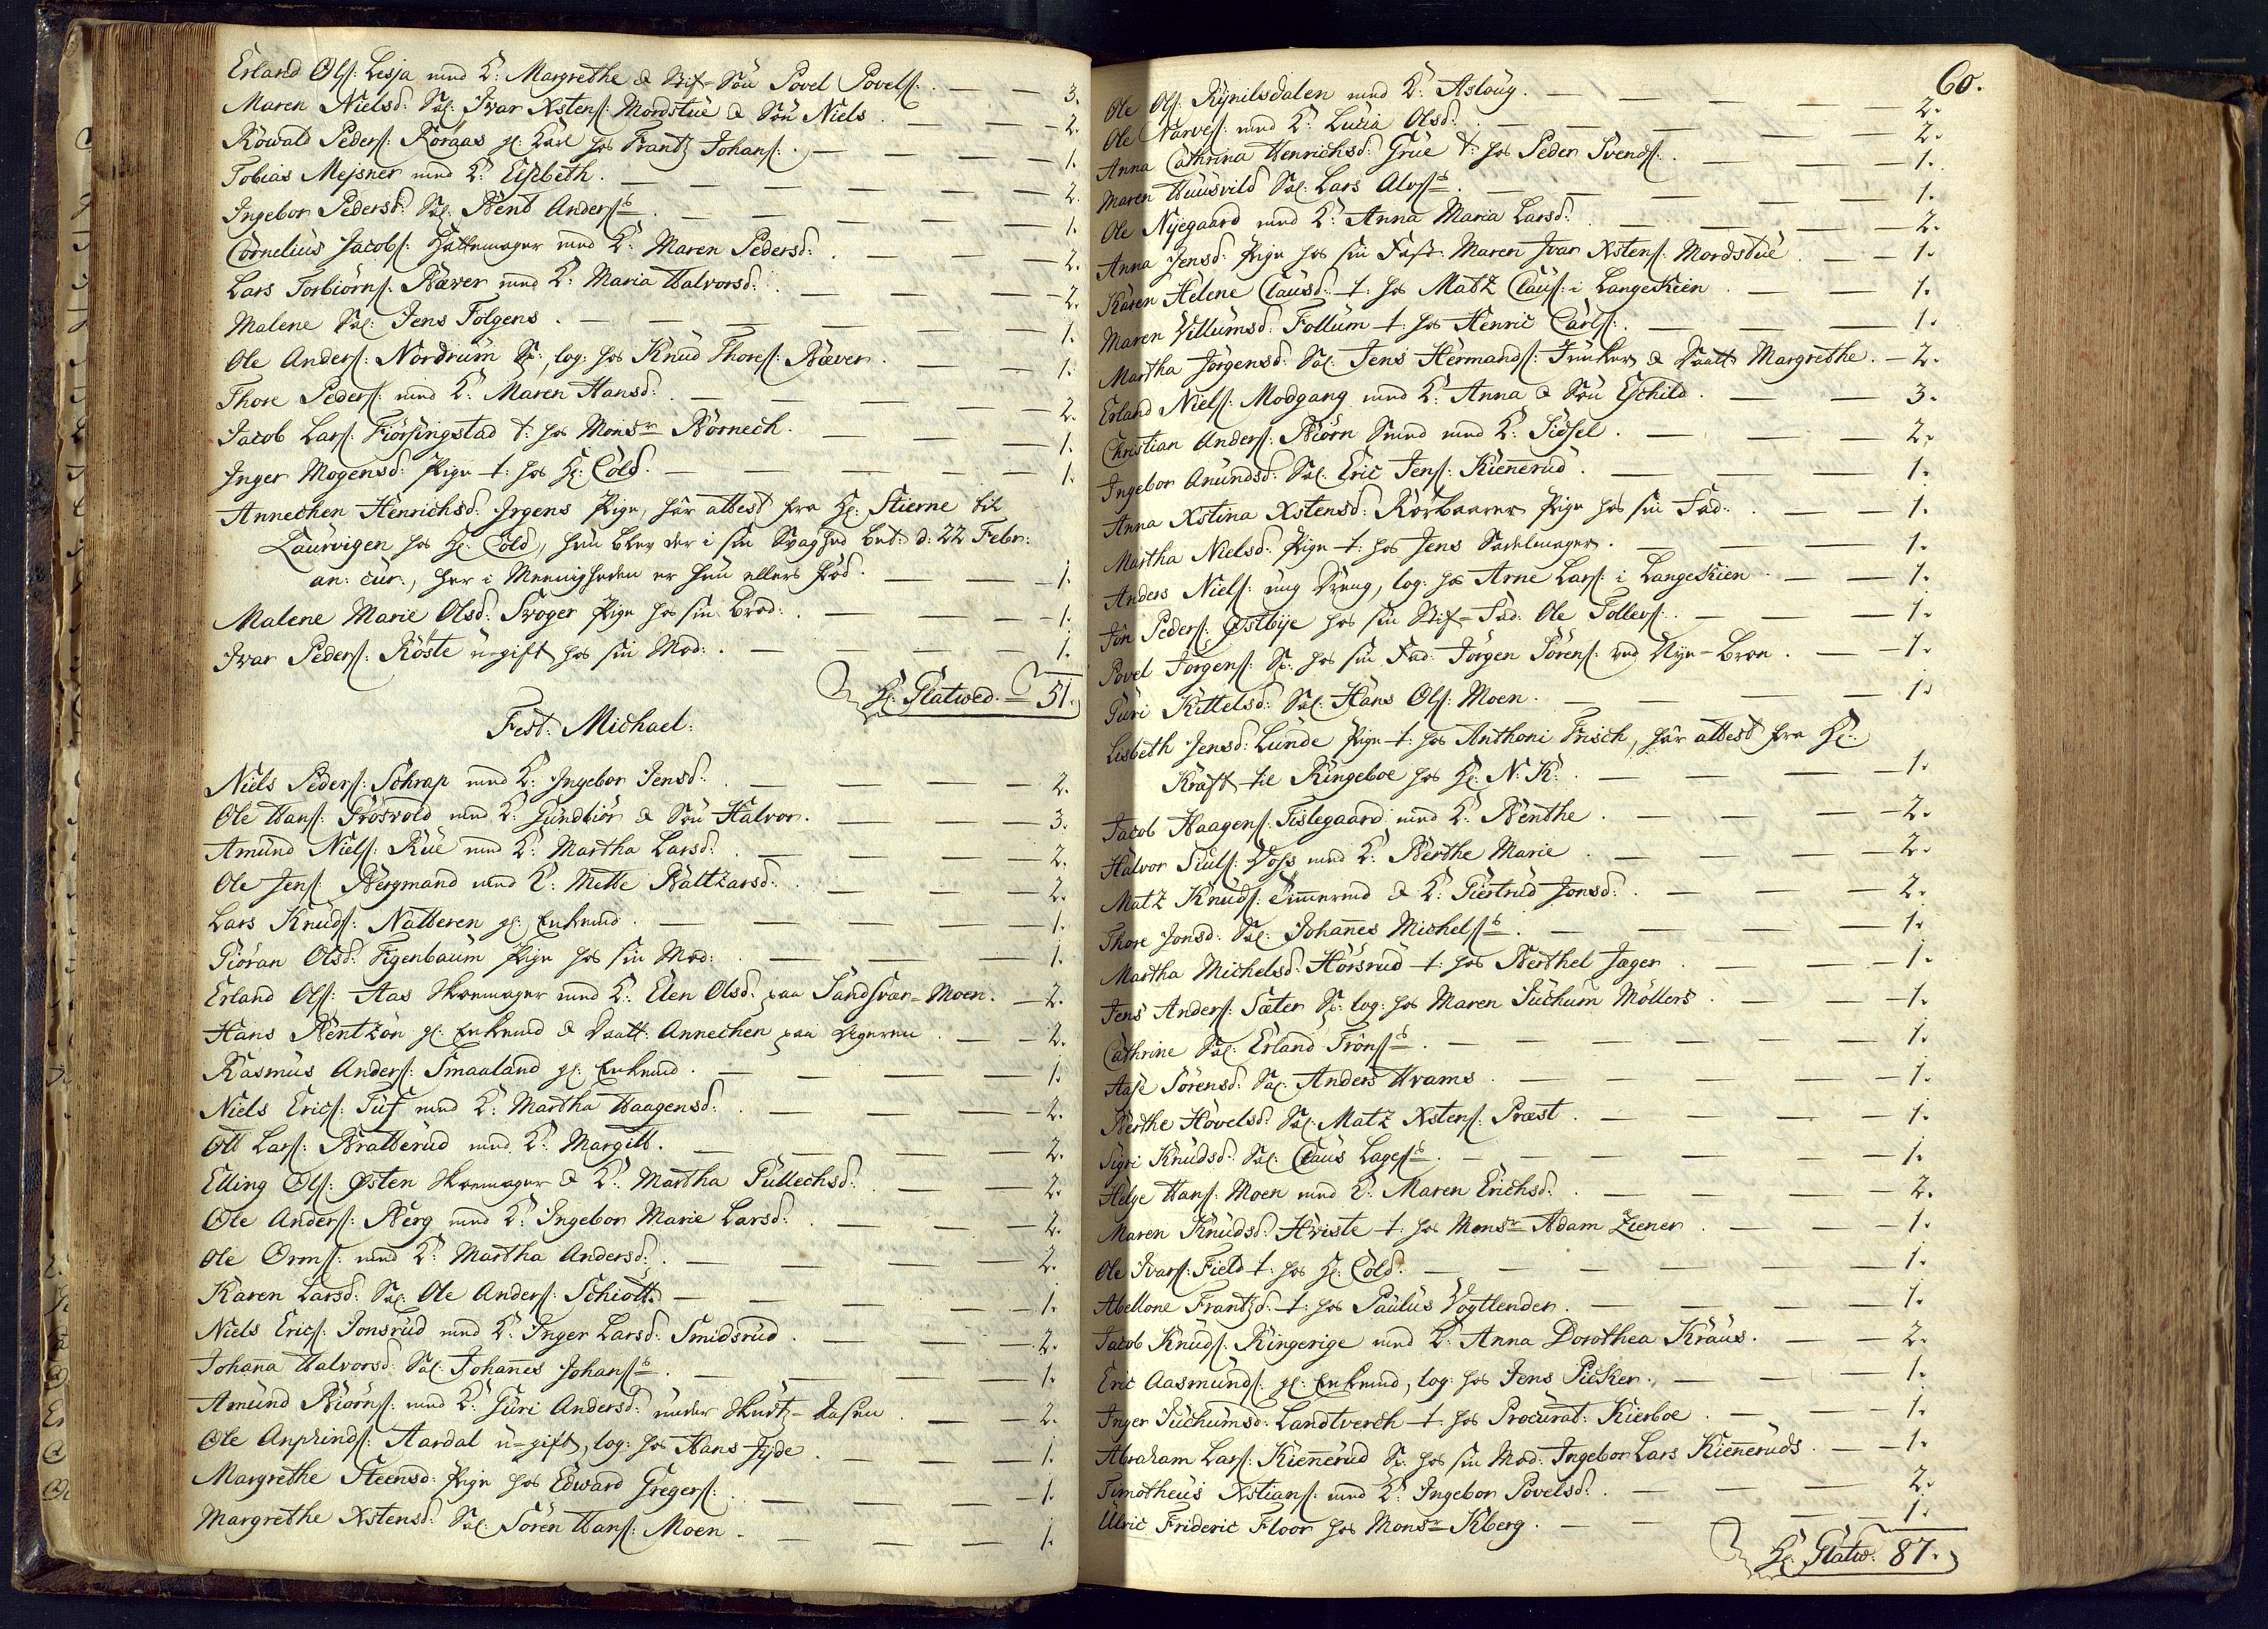 Erland Ols: Lesja med K: Margrethe & Stif-Søn Povel Povels: — — 3.
Maren Nielsd: Sal: Ivar Xstens: Mordstue & Søn Niels — — — 2.
Rowald Peders: Roraas gl: Karl hos Frantz Johans: — — — 1.
Tobias Mejsner med K: Elisbeth. — — — 2.
Ingebor Pedersd: Sal: Bent Anders — — — 1.
Cornelius Jacobs: Hattemager med K: Maren Pedersd: — — 2.
Lars Torbiørns: Bæver med K: Maria Halvorsd: — — 2.
Malene Sal: Jens Folgens. — — — 1.
Ole Anders: Nordrum S:, log: hos Knud Thores: Bæver. — — 1.
Thore Peders: med K: Maren Hansd: — — — 2.
Jacob Lars: Fiøringstad t: hos Monsr Børnech. — — 1.
Inger Mogensd: Pige t: hos H: Cold. — — — 1.
Annechen Henrichsd: Irgens Pige, har attest fra H: Stierne til
Laurvigen hos H: Cold, hun blev der i sin Svaghed bet: d: 22 Febr:
an: cur:, her i Meenigheden er hun ellers fød. — — 1.
Malene Marie Olsd: Svoger Pige hos sin Brod: — — 1.
Ivar Peders: Röste u-gift hos sin Mod: — — 1.
H: Platwed. — 51.
Fest: Michael:
Niels Peders: Schrap med K: Ingebor Jensd: — — 2.
Ole Hans: Grosvold med K: Gundbiør & Søn Halvor. — — 3.
Amund Niels: Rue med K: Martha Larsd: — — 2.
Ole Jens: Bergmand med K: Mette Baltzarsd: — — 2.
Lars Knuds: Natteren gl: Enkemd. — — — 1.
Giøran Olsd: Figenbaum Pige hos sin Mod: — — 1.
Erland Ols: Aas Skoemager med K: Elen Olsd: paa Sandsvær-Moen. — 2.
Hans Bentzon gl: Enkemd & Daatt: Annechen paa Ageren — — 2.
Rasmus Anders: Smaaland gl: Enkemd. — — 1.
Niels Erics: Tuf med K: Martha Haagensd: — — 2.
Ole Lars: Bratterud med K: Margitt. — — 2.
Elling Ols: Østen Skoemager & K: Martha Gullechsd: — — 2.
Ole Anders: Berg med K: Ingebor Marie Larsd: — — 2.
Ole Orms: med K: Martha Andersd: — — 2.
Karen Larsd: Sal: Ole Anders: Schiøtt. — — 1.
Niels Erics: Jonsrud med K: Inger Larsd: Smidsrud. — — 2.
Johana Halvorsd: Sal: Johanes Johans — — 1.
Amund Biørns: med K: Guri Andersd: under — — 2.
Ole Anphinds: Aardal u-gift, log: hos Hans Jyde — — 1.
Margrethe Steensd: Pige hos Edward Gregers: — — 1.
Margrethe Xstensd: Sal: Soren Hans: Moen. — — 1.
60.
Ole Ols: Rynilsdalen med K: Asloug. — — 2.
Ole Narves: med K: Lucia Olsd: — — 2.
Anna Cathrina Henrichsd: Grue t: hos Peder Svends: — — 1.
Maren Huusvild Sal: Lars Alvs — — 1.
Ole Nyegaard med K: Anna Maria Larsd: — — 2.
Anna Jensd: Pige hos sin Fast: Maren Ivar Xstens: Mordstue — — 1.
Karen Helene Clausd: t: hos Matz Claus: i Langekien — — 1.
Maren Villumsd: Follum t: hos Henric Carls: — — 1.
Martha Jørgensd: Sal: Jens Hermands: Junker & Daatt Margrethe. — 2.
Erland Niels: Modgang med K: Anna & Søn Eschild. — — 3.
Christian Anders: Biørn Smed med K: Sidsel. — — 2.
Ingebor Amundsd: Sal: Eric Jens: Kienerud. — — 1.
Anna Xstina Xstensd: Rørbaarer Pige hos sin Fad: — — 1.
Martha Nielsd: Pige t: hos Jens Sadelmager. — — 1.
Anders Niels: ung Dreng, log: hos Arne Lars: i Langekien — — 1.
Jon Peders: Østbye hos sin Stif-Fad: Ole Tollevs: — — 1.
Povel Jorgens: S: hos sin Fad: Jørgen Sørens: ved Nye-Broe. — — 1.
Guri Kittelsd: Sal: Hans Ols: Moen. — — 1.
Lisbeth Jensd: Lunde Pige t: hos Anthoni Frisch, har attest fra H:
Kraft til Ringeboe hos H: N: K: — — 1.
Jacob Haagens: Tislegaard med K: Benthe. — — 2.
Halvor Siuls: Voss med K: Berthe Marie — — 2.
Matz Knuds: Timermd & K: Giertrud Jonsd: — — 2.
Thore Jonsd: Sal: Johanes Michels — — 1.
Martha Michelsd: Horsrud t: hos Berthel Jæger. — — 1.
Jens Anders: Sæter S: log: hos Maren Juchum Møllers — — 1.
Cathrine Sal: Erland Trons — — 1.
Aase Sørensd: Sal: Anders Hrams. — — 1.
Berthe Hovelsd: Sal: Matz Xstens: Præst. — — 1.
Sigri Knudsd: Sal: Claus Lages — — 1.
Helge Hans: Moen med K: Maren Erichsd: — — 2.
Maren Knudsd: Hviste t: hos Monsr Adam Ziener. — — 1.
Ole Ivars: Field t: hos H: Cold. — — 1.
Abellone Frantzd: t: hos Paulus Vogtlender. — — 1.
Jacob Knuds: Ringerige med K: Anna Dorothea Kraus. — — 2.
Eric Aasmunds: gl: Enkemd, log: hos Jens Picker. — — 1.
Inger Juchumsd: Landtverch t: hos Procurat: Kierboe. — — 1.
Abraham Lars: Kienerud S: hos sin Mod: Ingebor Lars Kieneruds. — — 1.
Timotheus Xstians: med K: Ingebor Povelsd: — — 2.
Ulric Frideric Floor hos Monsr Kberg. — — 1.
H: Platw: 87.